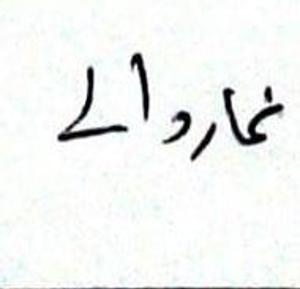 خمار والے